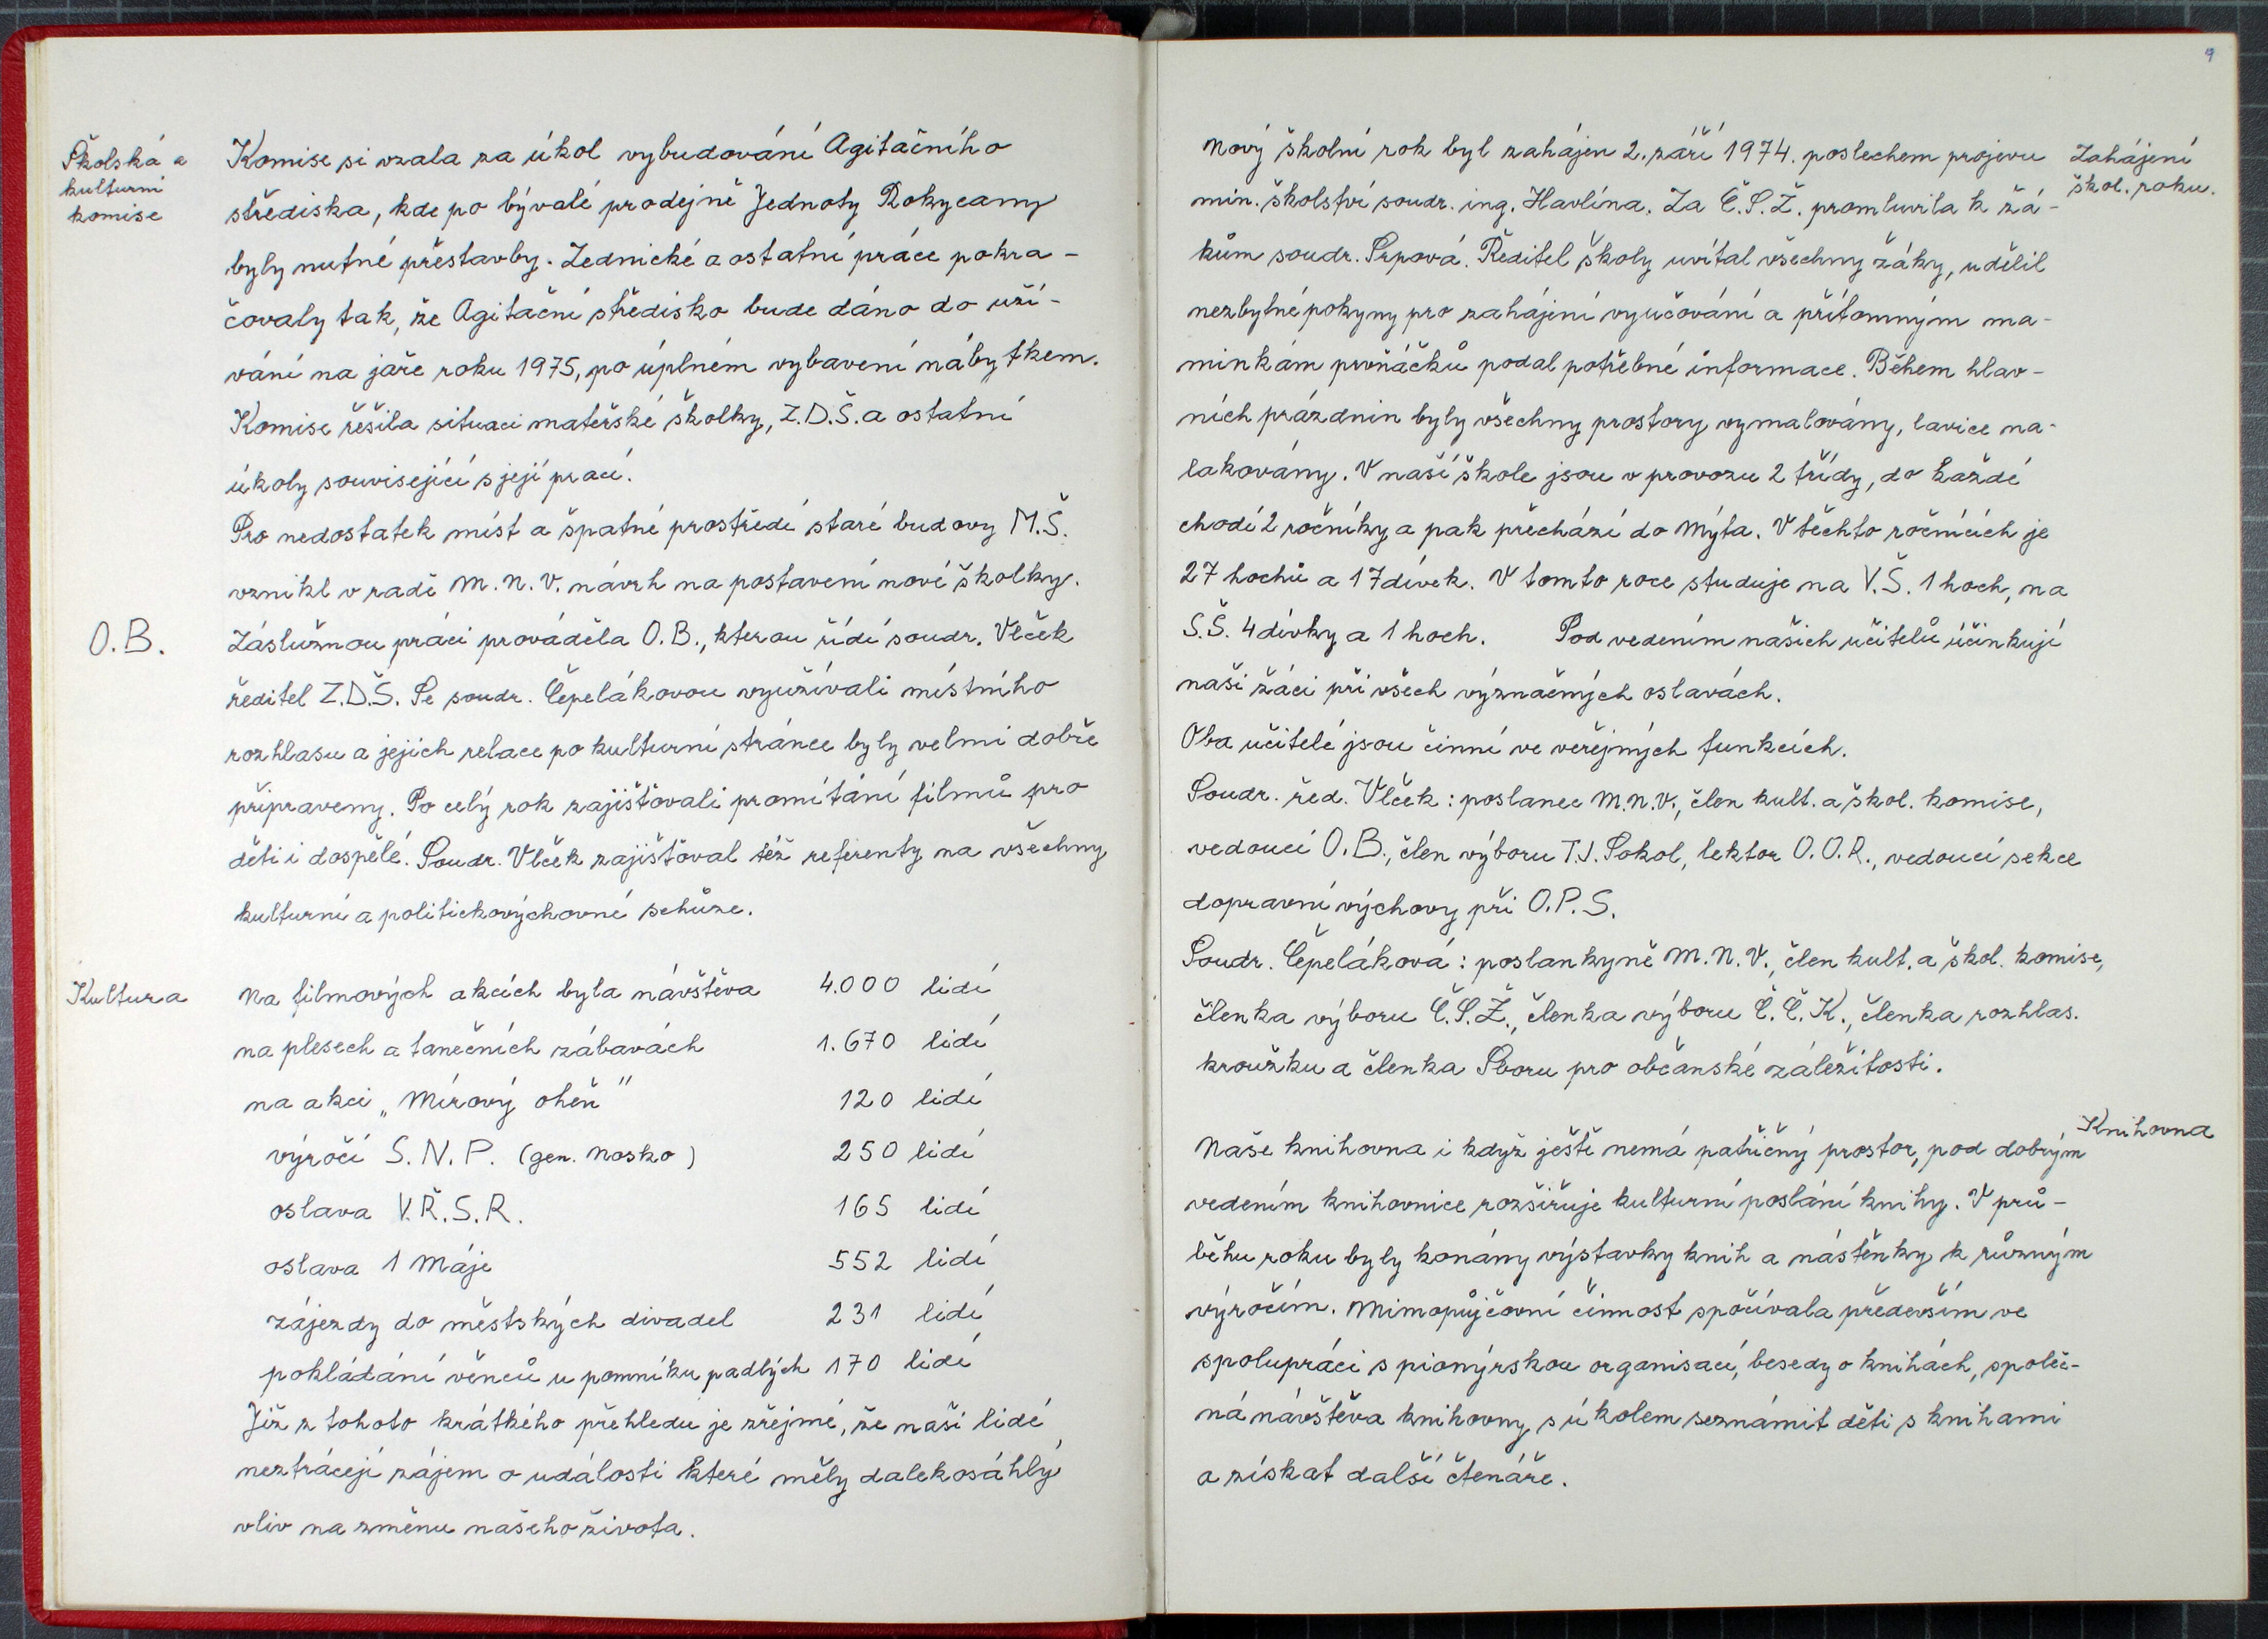 Školská a
kulturní
komise
Komise si vzala za úkol vybudování Agitačního
střediska, kde po bývalé prodejně Jednoty Rokycany
byly nutné přestavby. Zednické a ostatní práce pokra-
čovaly tak, že Agitační středisko bude dáno do uží-
vání na jaře roku 1975, po úplném vybavení nábytkem.
Komise řešila situaci mateřské školky, Z.D.Š. a ostatní
úkoly související s její prací.
Pro nedostatek míst a špatné prostředí staré budovy M.Š.
vznikl v radě M.N.V. návrh na postavení nové školky.
O.B.
Záslužnou práci prováděla O.B., kterou řídí soudr. Vlček
ředitel Z.D.Š. Se soudr. Čepelákovou využívali místního
rozhlasu a jejich relace po kulturní stránce byly velmi dobře
připraveny. Po celý rok zajišťovali promítání filmů pro
děti i dospělé. Soudr. Vlček zajišťoval též referenty na všechny
kulturní a politickovýchovné schůze.
Kultura
Na filmových akcích byla návštěva 4.000 lidí
na plesech a tanečních zábavách 1.670 lidí
na akci „Mírový oheň" 120 lidí
výročí S.N.P. (gen. Nosko) 250 lidí
oslava V.Ř.S.R. 165 lidí
oslava 1 Máje 552 lidí
zájezdy do městských divadel 231 lidí
pokládání věnců u pomníku padlých 170 lidí
Již z tohoto krátkého přehledu je zřejmé, že naši lidé
neztrácejí zájem o události které měly dalekosáhlý
vliv na změnu našeho života.
9
Zahájení
škol. roku.
Nový školní rok byl zahájen 2. září 1974. poslechem projevu
min. školství soudr. ing. Havlína. Za Č.S.Ž. promluvila k žá-
kům soudr. Srpová. Ředitel školy uvítal všechny žáky, udělil
nezbytné pokyny pro zahájení vyučování a přítomným ma-
minkám prvňáčků podal potřebné informace. Během hlav-
ních prázdnin byly všechny prostory vymalovány, lavice na-
lakovány. V naší škole jsou v provozu 2 třídy, do každé
chodí 2 ročníky a pak přechází do Mýta. V těchto ročnících je
27 hochů a 17 dívek. V tomto roce studuje na V.Š. 1 hoch, na
S.Š. 4 dívky a 1 hoch. Pod vedením našich učitelů účinkují
naši žáci při všech význačných oslavách.
Oba učitelé jsou činní ve veřejných funkcích.
Soudr. řed. Vlček: poslanec M.N.V., člen kult. a škol. komise,
vedoucí O.B., člen výboru T.J. Sokol, lektor O.O.R., vedoucí sekce
dopravní výchovy při O.P.S.
Soudr. Čepeláková: poslankyně M.N.V., člen kult. a škol. komise,
členka výboru Č.S.Ž., členka výboru Č.Č.K., členka rozhlas.
kroužku a členka Sboru pro občanské záležitosti.
Knihovna
Naše knihovna i když ještě nemá patřičný prostor, pod dobrým
vedením knihovnice rozšiřuje kulturní poslání knihy. V prů-
běhu roku byly konány výstavky knih a nástěnky k různým
výročím. Mimopůjčovní činnost spočívala především ve
spolupráci s pionýrskou organisací, besedy o knihách, společ-
ná návštěva knihovny s úkolem seznámit děti s knihami
a získat další čtenáře.